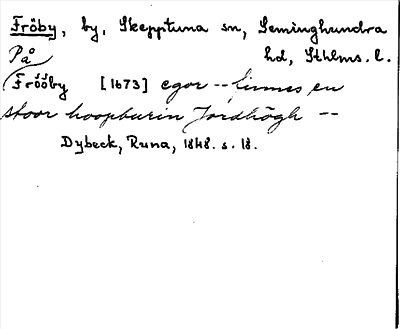 Fröby, by, Skepptuna sn, Seminghundra
hd, Sthlms. l.
På
Frööby [1673] egor -- finnes en
stoor hoopburin Jordhögh --
Dybeck, Runa, 1848. s. 18.